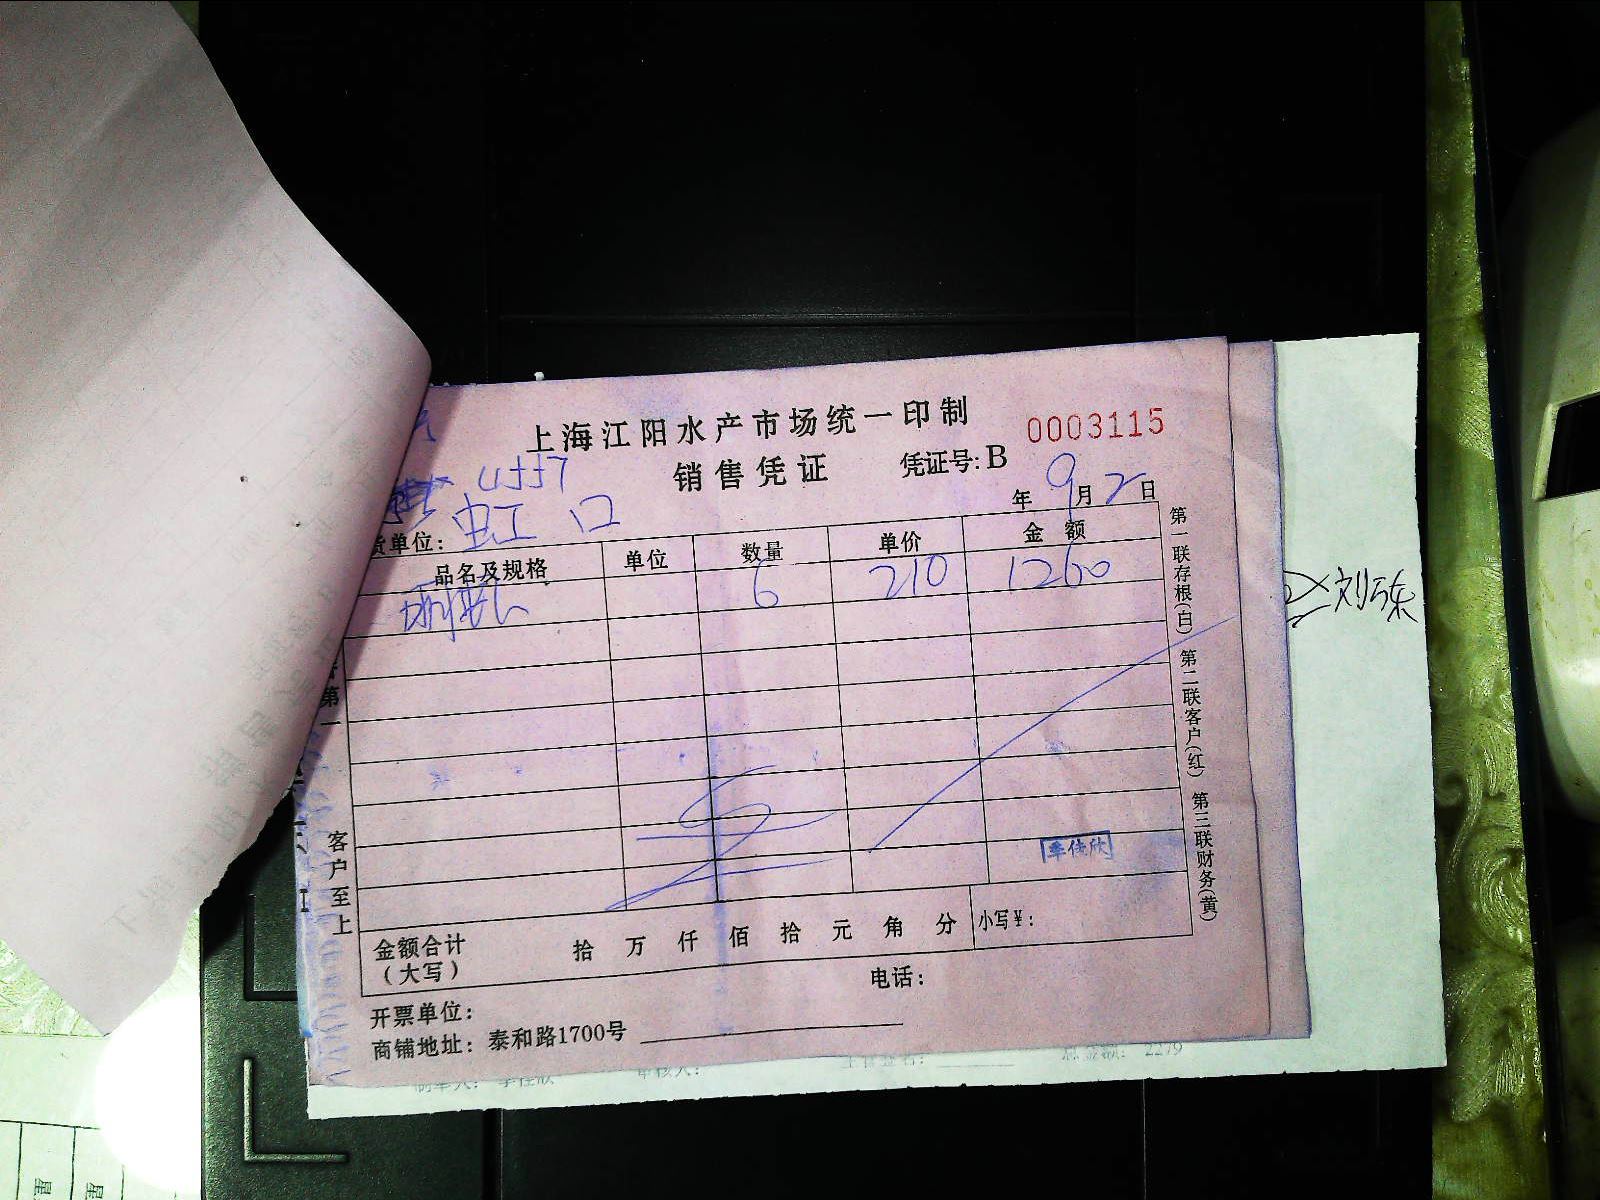 上海江阳水产市场统一印制
0003115
销售凭证
凭证号:B
年9月2日
货单位: 虹口
品名及规格 单位 数量 单价 金额
6 210 1260
第一联存根(白) 第二联客户(红) 第三联财务(黄)
第一
客户至上
季佳欣
金额合计
(大写)
拾万仟佰拾元角分
小写¥:
电话:
开票单位:
商铺地址: 泰和路1700号
制单人: 季佳欣 审核人: 主管签名: 总金额: 2279